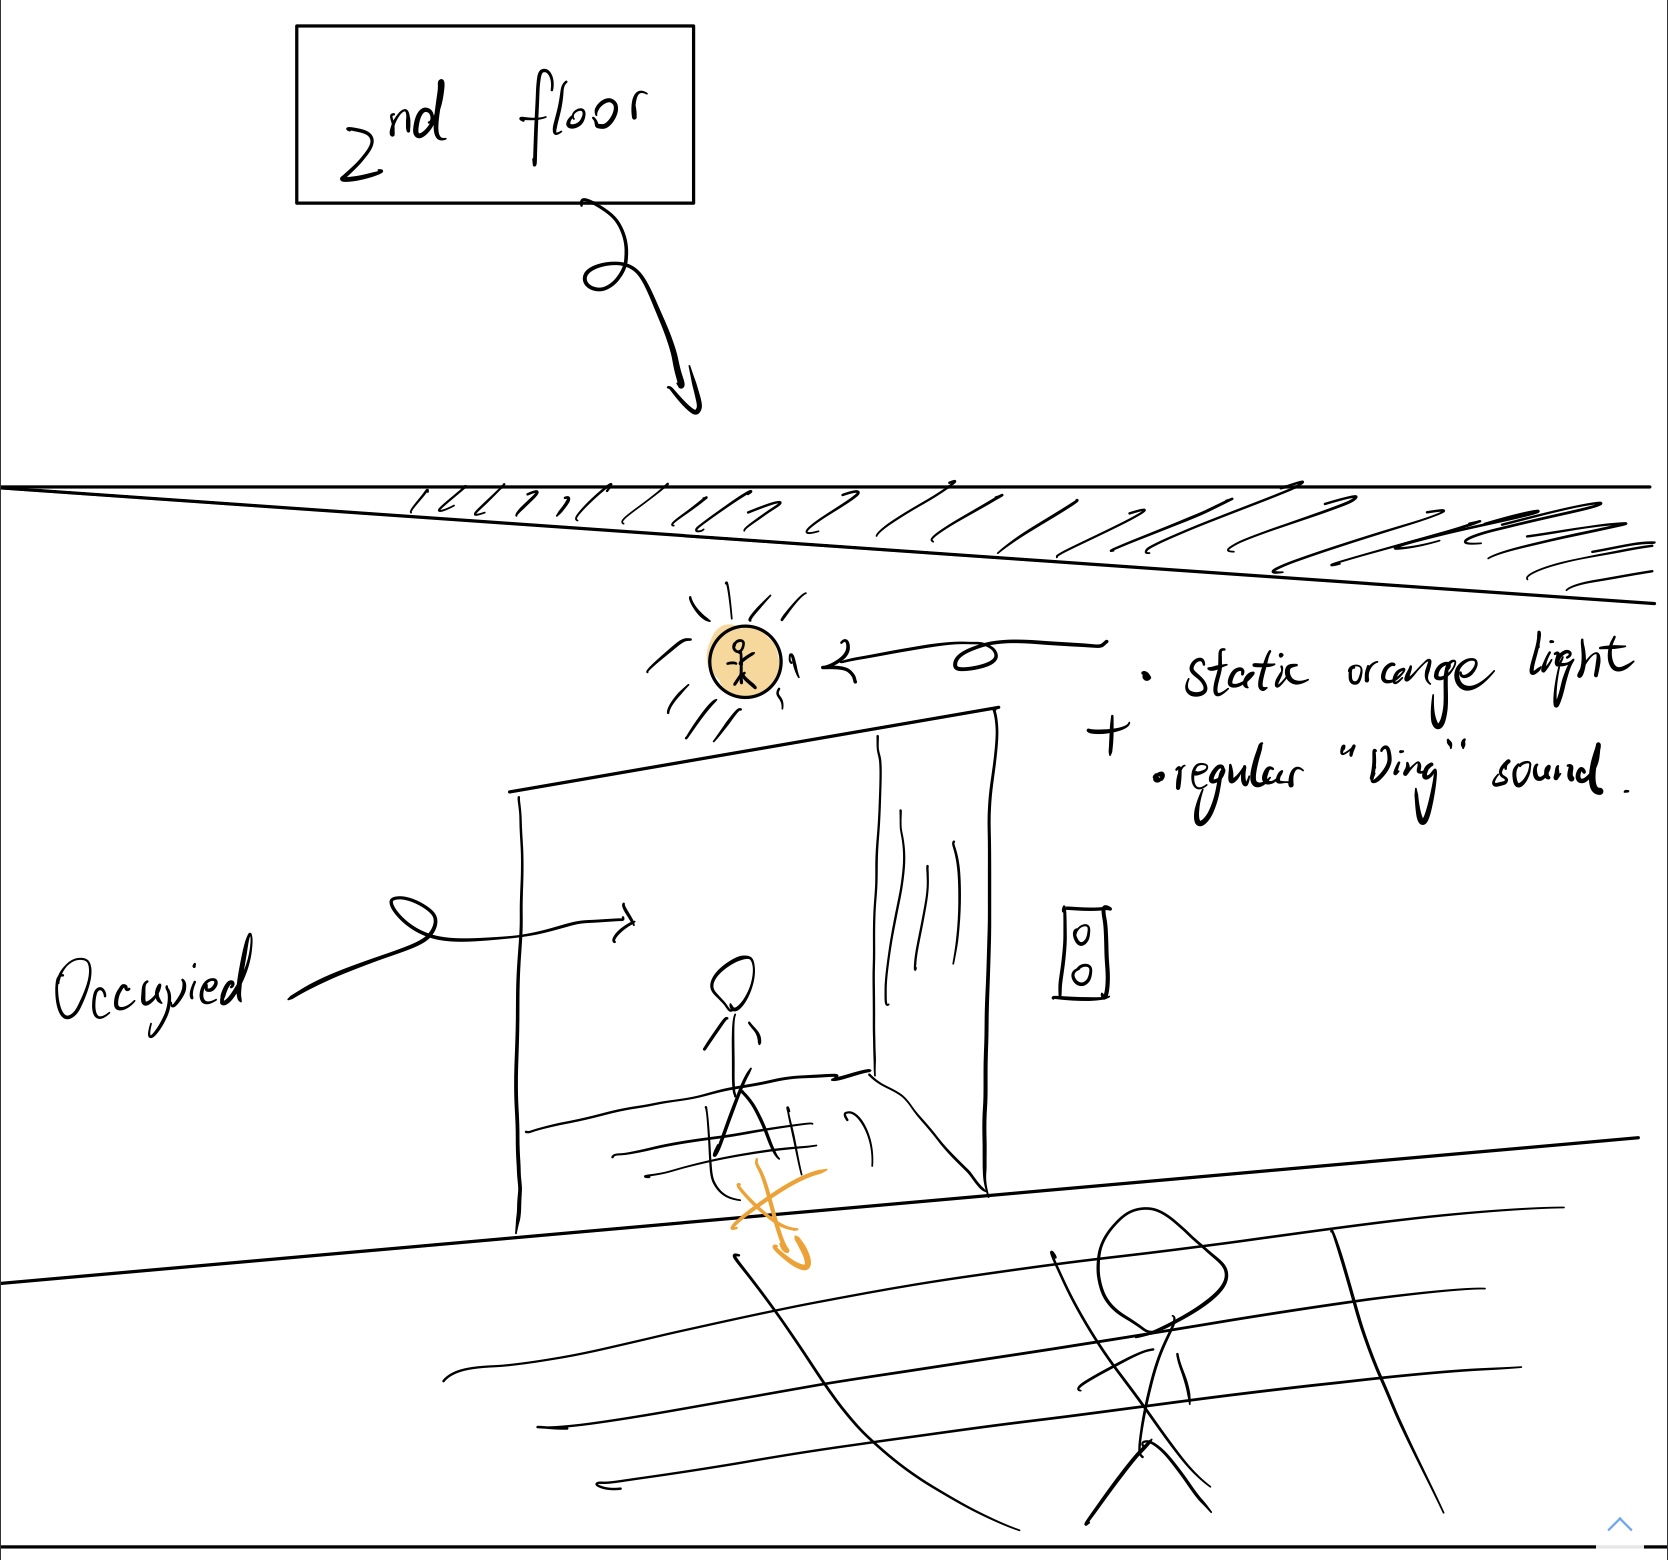 2nd floor
• Static orange light
+
• regular "Ding" sound.
Occupied